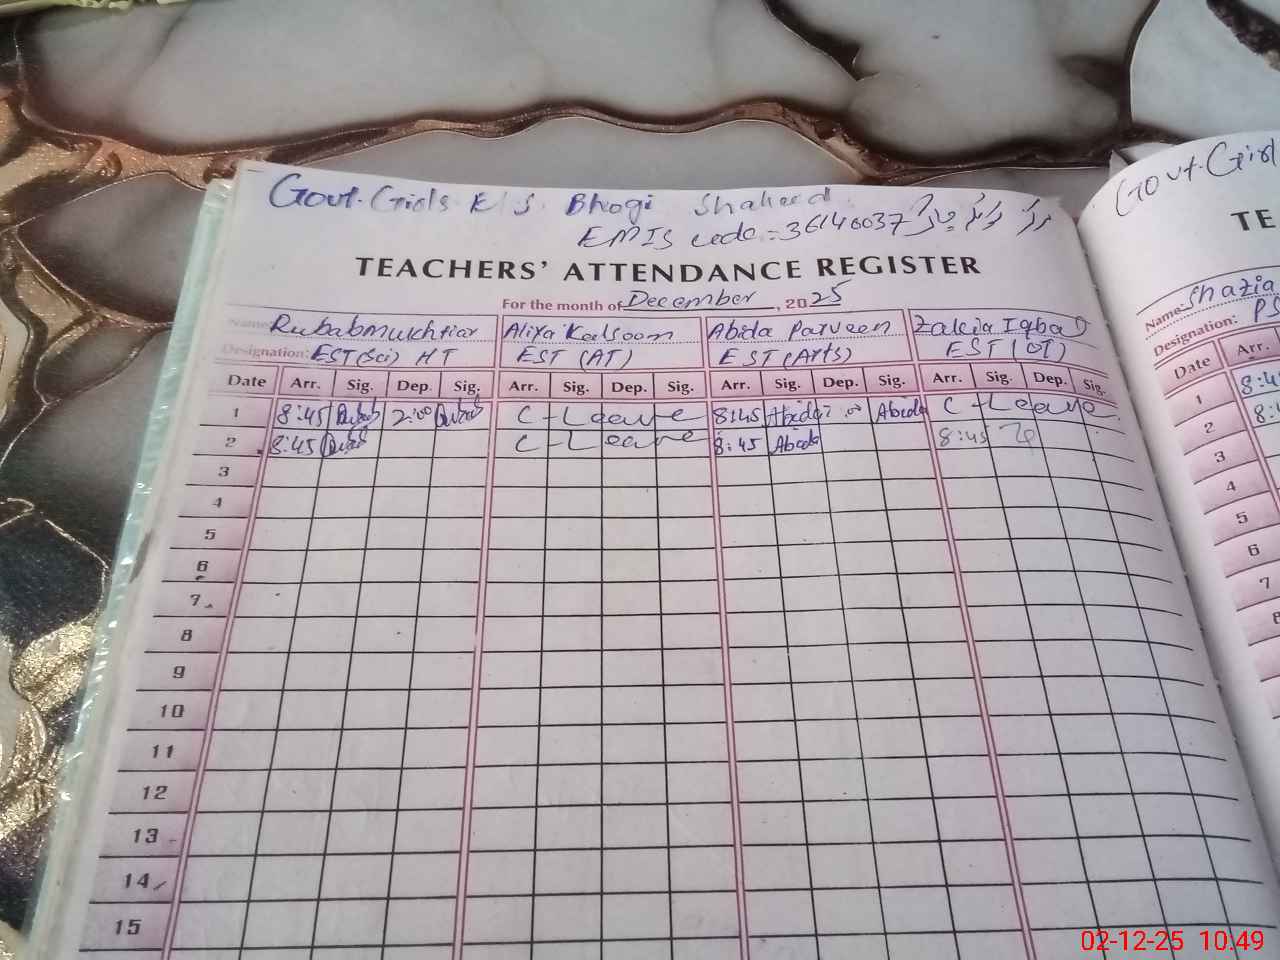 Govt. Girls E.S. Bhogi Shaheed
EMIS code:-36140037
TEACHERS' ATTENDANCE REGISTER
For the month of December, 2025
Name: Rubabmukhtiar Aliya Kalsoom Abida Parveen Zakia Iqbal
Designation: EST(Sci) HT EST (AT) EST(Arts) EST (OT)
Date Arr. Sig. Dep. Sig. Arr. Sig. Dep. Sig. Arr. Sig. Dep. Sig. Arr. Sig. Dep. Sig.
1 8:45 Rubab 2:00 Rubab C-Leave 8:45 Abida :00 Abida C-Leave
2 8:45 Rubab C-Leave 8:45 Abida 8:45
3
4
5
6
7
8
9
10
11
12
13
14
15
Govt. Girl
TE
Name: Shazia
Designation: PS
Date Arr.
1 8:4
2 8:
3
4
5
6
7
02-12-25 10:49